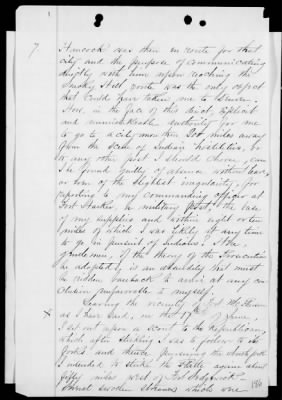 7
Hancock was then en route for that
city and the purpose of communicating
directly with him upon reaching the
Smoky Hill route was the only object
that could have taken me to Denver.
Now, in the face of this direct, explicit
and unmistakable authority for me
to go to a city more than 200 miles away
from the scene of Indian hostilities, or
to any other post I should choose, can
I be found guilty of absence without leave,
or even of the slightest irregularity, for
reporting to my commanding officer at
Fort Harker, a military post, the base
of my supplies and within eight or ten
miles of which I was likely at any time
to go in pursuit of Indians? Now,
gentlemen, if the theory of the Prosecution
be adopted, is an absurdity that must
be ridden bareback to arrive at any con-
clusion unfavorable to myself.
Leaving the vicinity of Fort McPherson
x as I have said, on the 17th of June,
I set out upon a scout to the Republican,
which after striking I was to follow to its
forks and thence pursuing the north fork
I intended to strike the Platte again about
fifty miles west of Fort Sedgwick.
swollen streams which were
186